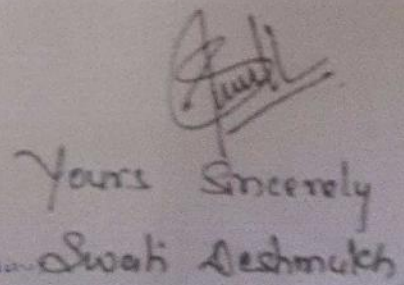 Swati
Yours Sincerely
Swati Deshmukh